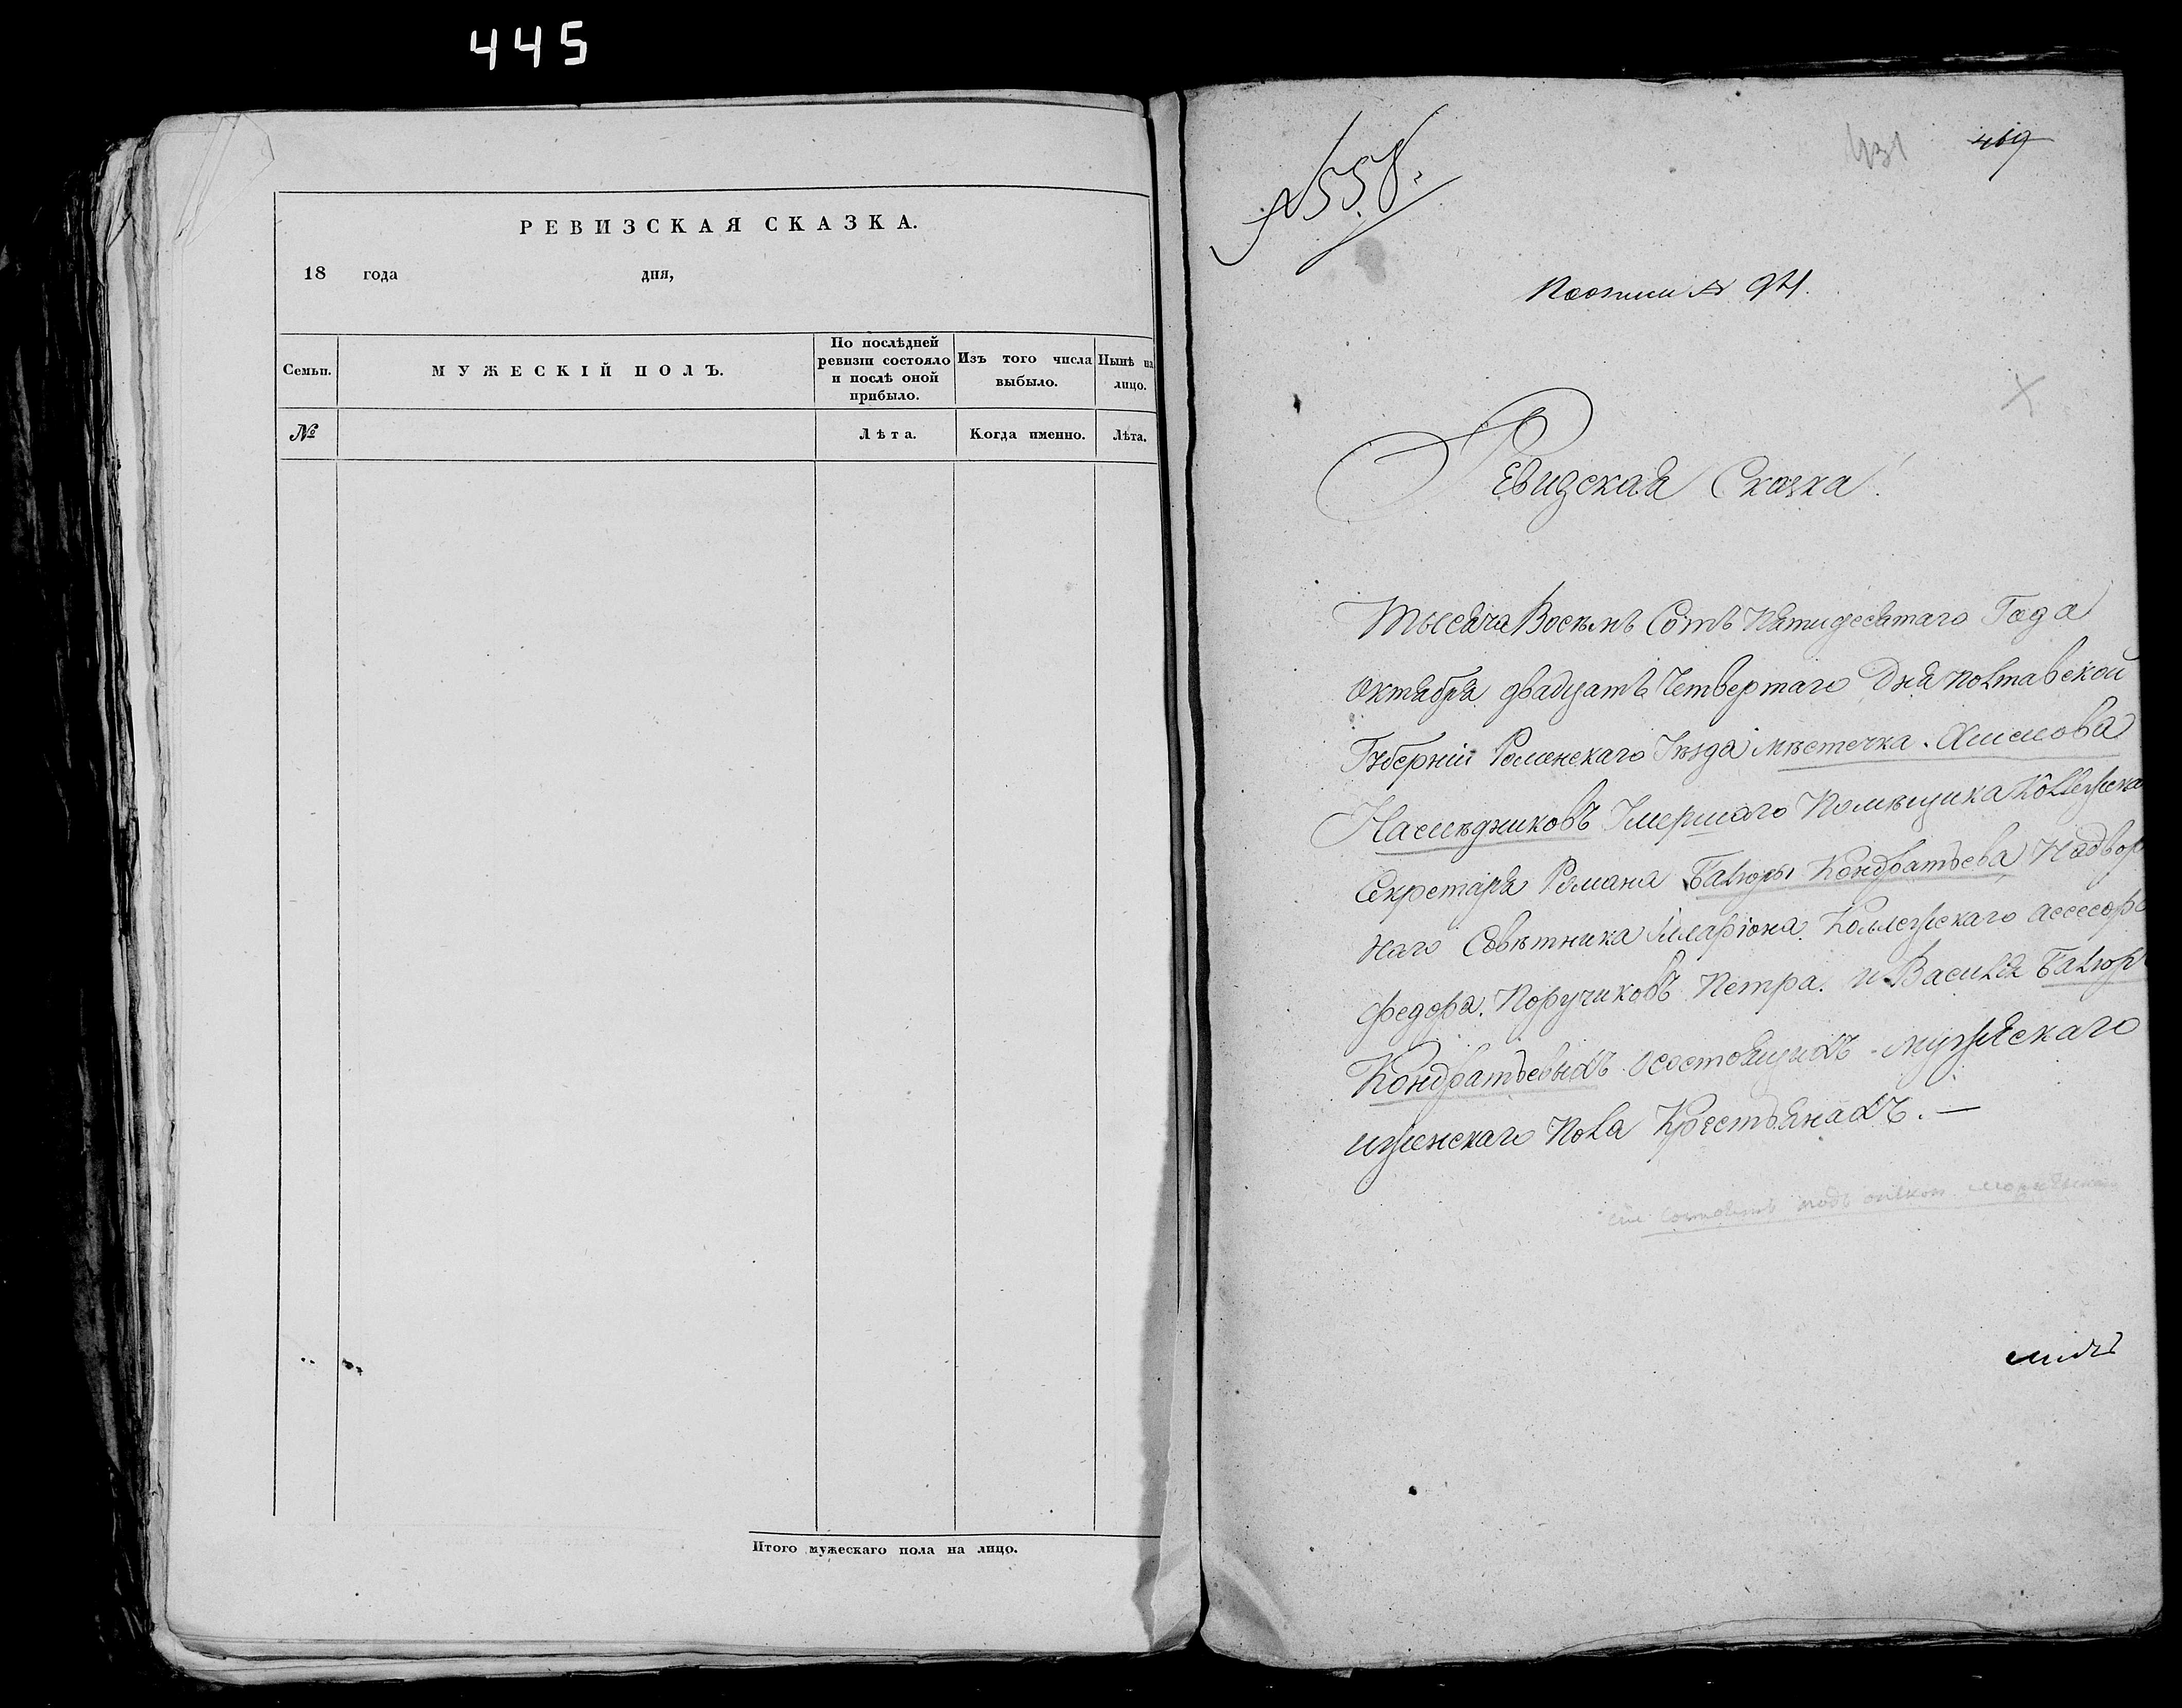 445
РЕВИЗСКАЯ СКАЗКА.
18 года дня,
Семьи. МУЖЕСКІЙ ПОЛЪ. По послѣдней ревизіи состояло и послѣ оной прибыло. Изъ того числа выбыло. Нынѣ на лицо.
№ Лѣта. Когда именно. Лѣта.
Итого мужескаго пола на лицо.
431 469
№558.
По описи № 94.
Ревизская Сказка
Тысяча Восемь Сотъ Пятидесятаго Года
Октября двадцать Четвертаго Дня Полтавской
Губерніи Роменскаго Уѣзда мѣстечка. Хмелова
Наслѣдниковъ Умершаго Помѣщика Коллежска
Секретаря Романа Бацюры Кондратьева Надвор
наго Совѣтника Иларіона. Коллежскаго асессора
Федора. Поручиковъ Петра. и Василія Бацюръ
Кондратьевыхъ Осостоящихъ мужескаго
иженскаго Пола Крестьянахъ. —